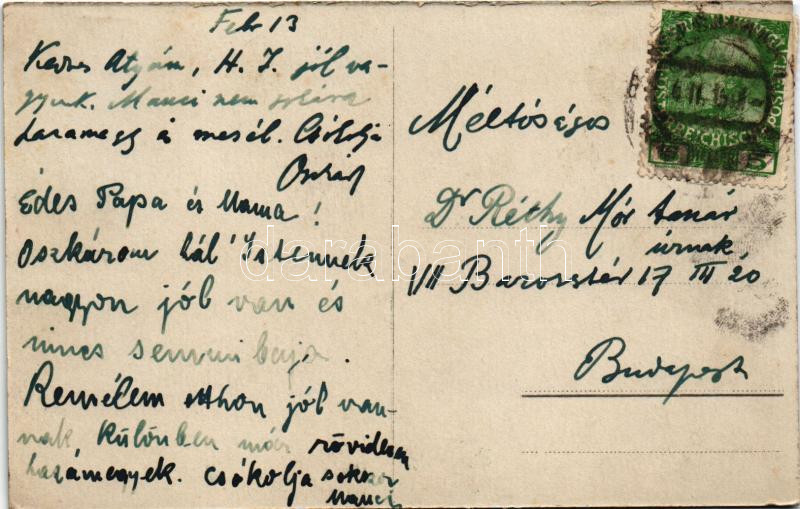 Febr 13
Kedves Atyám, H. I. jól va-
gyunk. Manci nem
haramegy és mesél. Csókolja
Oszkár
Édes Papa és Mama!
Oszkárom hál' Istennek
nagyon jól van és
nincs semmi baja.
Remélem otthon jól van-
nak, különben már rövidesen
hazamegyek. csókolja sokszor
Manci
Méltóságos
Dr Réthy Mór tanár
úrnak
VII Barosstér 17 III 20
Budapest
darabanth
5